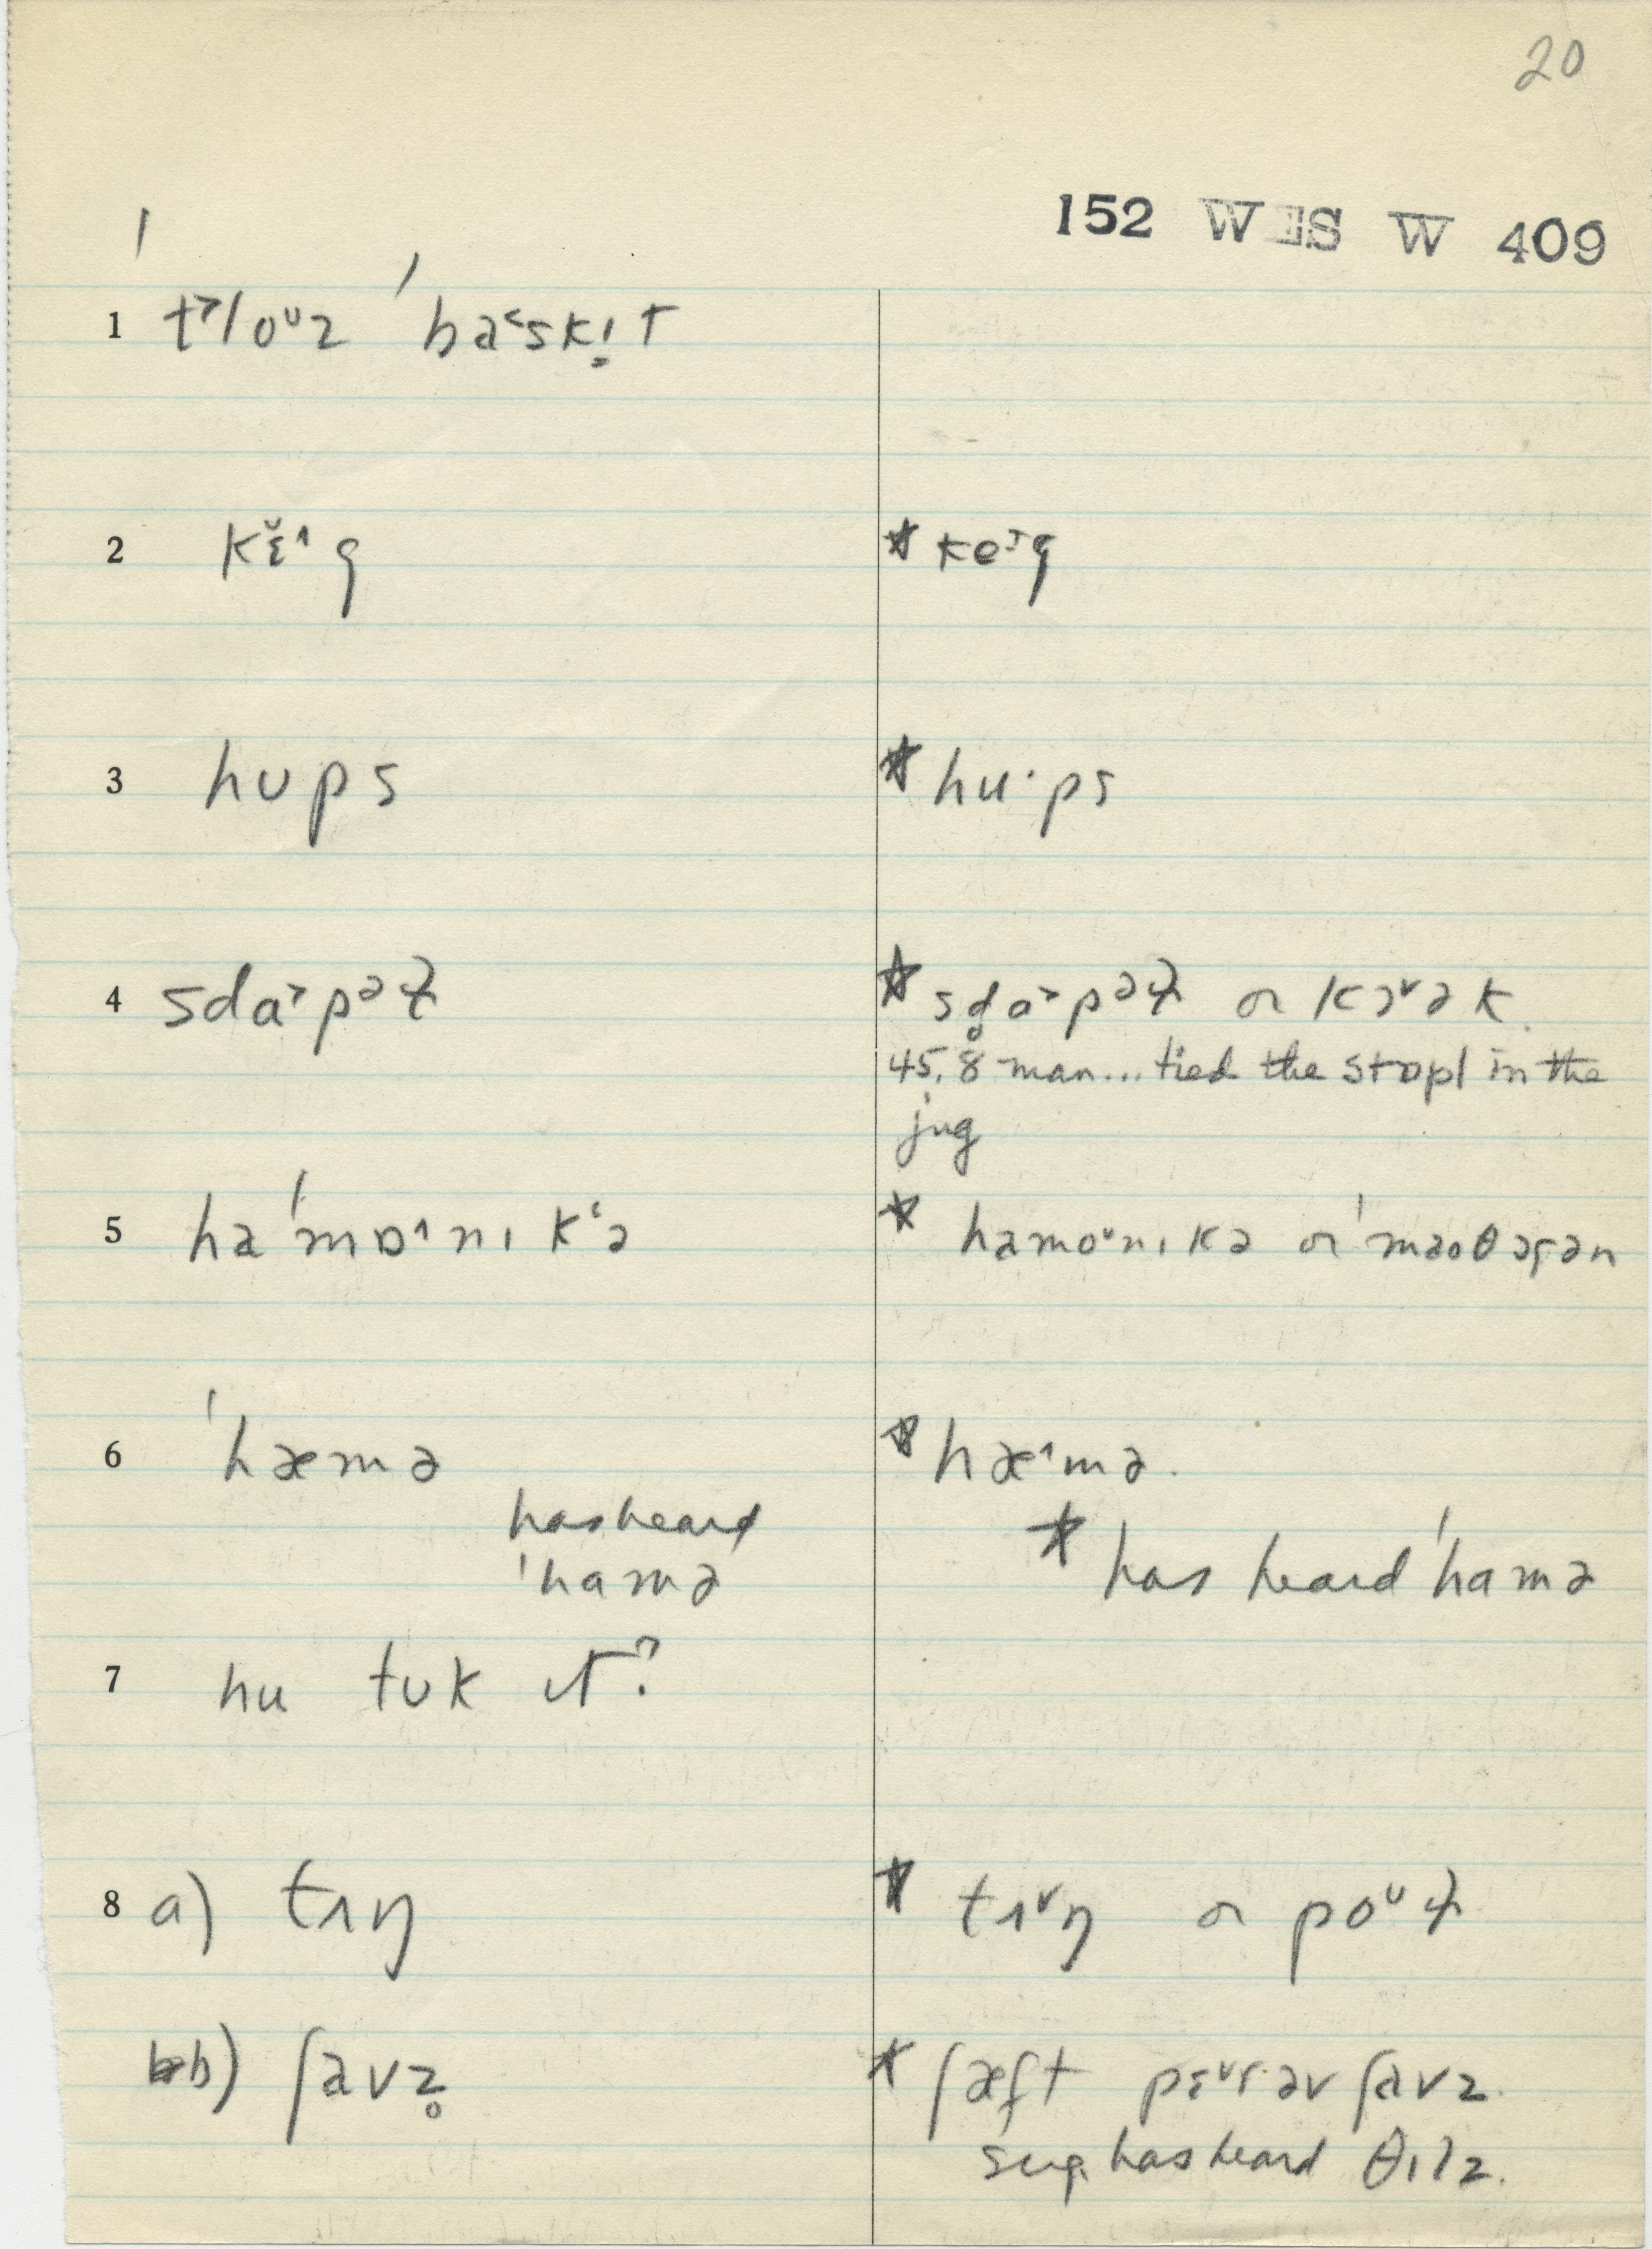 20
152 WES W 409
1 t˃loᶷz ˈba˂skı̣t
2 kɛ̆˄g
* ke˕g
3 hʊps
* hu·ps
4 sdɑ˃pᵊɫ
* sd̥ɑ˃pᵊɫ or kɔ˅ək.
45.8 man... tied the stopl in the
jug
5 haˈmɒ˄nɪkʻə
* hamoᶷnɪkə or ˈmaoθɔɾgən
6 ˈhæmə
* hæ˄mə.
has heard
ˈhamə
* has heard ˈhamə
7 hu tʊk ɪt?
8 a) tʌŋ
* tʌ˅ŋ or poᶷɫ
b) ʃavz̥
* ʃæft pɛ˅ɾ əv ʃavz.
sug. has heard θɪlz.